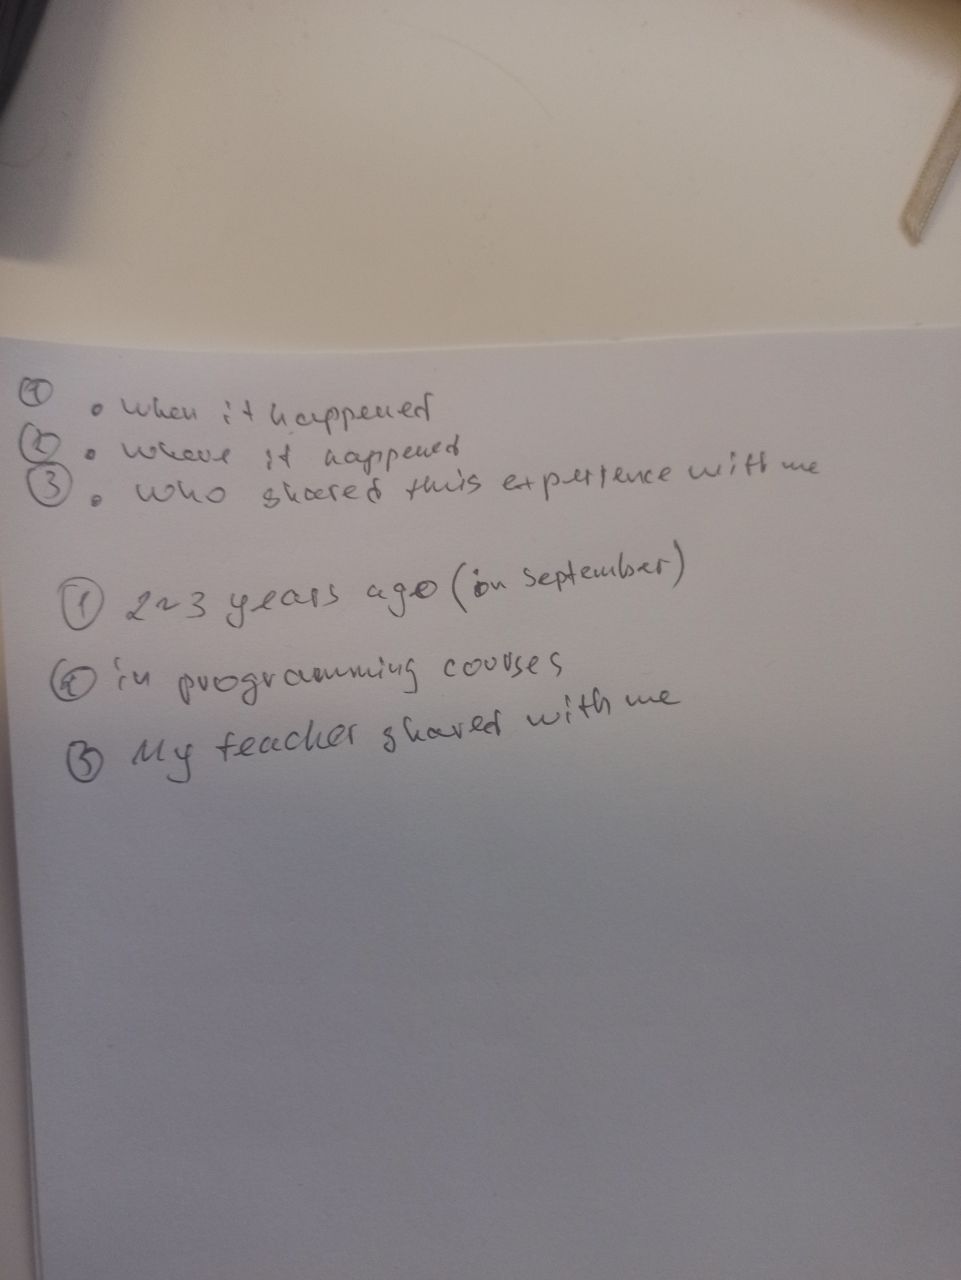 ① • when it happened
② • where it happened
③ • who shared this experience with me
① 2~3 years ago (in september)
② in programming courses
③ My teacher shared with me